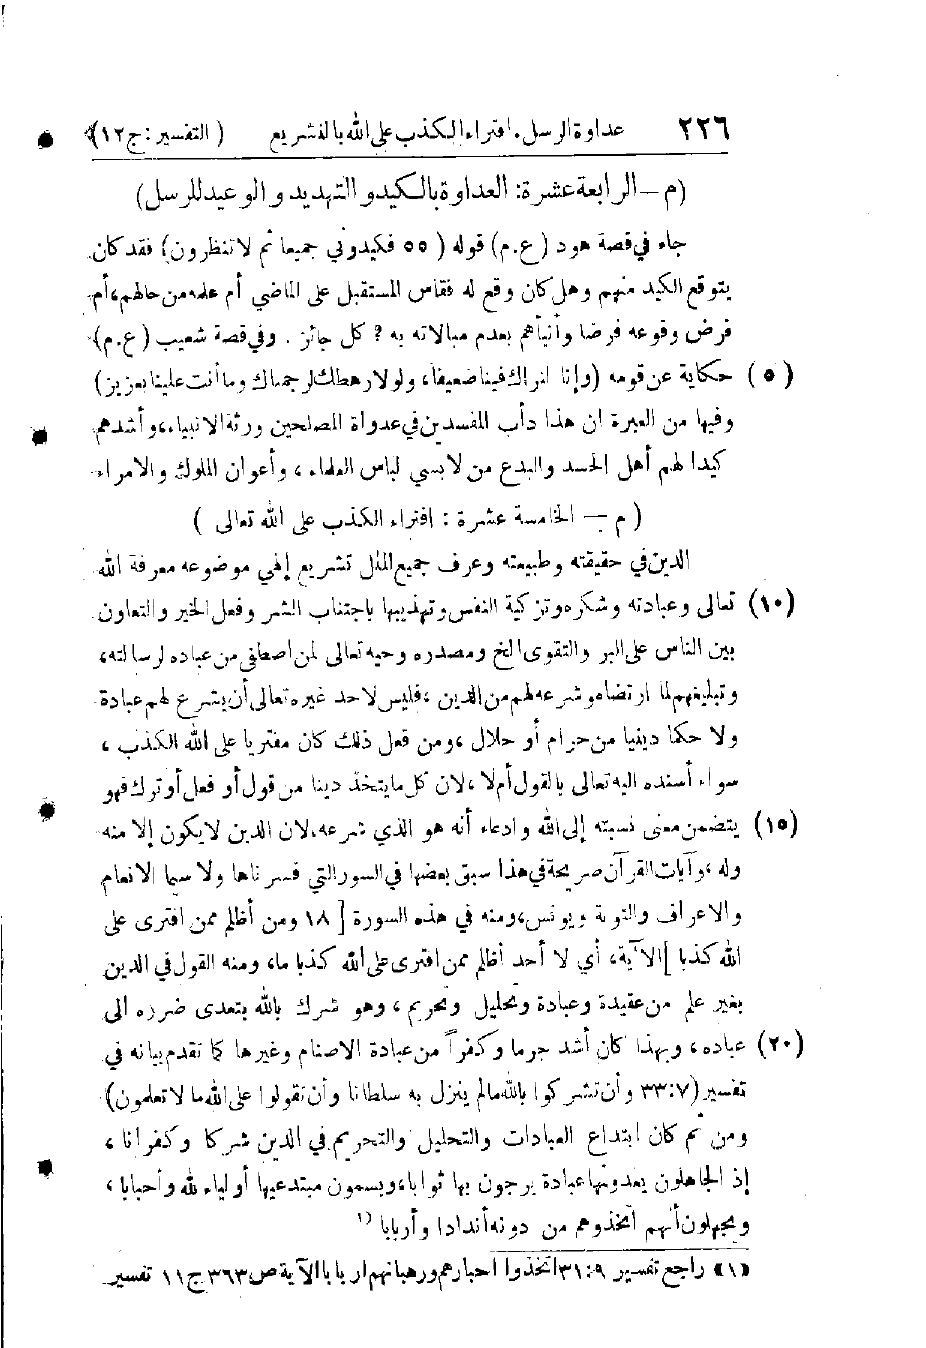 ٢٢٦ عداوة الرسل. افتراء الكذب على الله بالتشريع ( التفسير : ج ١٢)
(م – الرابعة عشرة : العداوة بالكيد و التهديد و الوعيد للرسل)
جاء في قصة هود (ع.م) قوله ( ٥٥ فكيدوني جميعا ثم لا تنظرون) فقد كان
يتوقع الكيد منهم وهل كان وقع له فقاس المستقبل على الماضي أم علمه من حالهم ، أم
فرض وقوعه فرضا وأنبأهم بعدم مبالاته به ? كل جائز . وفي قصة شعيب (ع.م)
(٥) حكاية عن قومه (وإنا لنراك فينا ضعيفا، ولولا رهطك لرجمناك وما أنت علينا بعزيز)
وفيها من العبرة ان هذا دأب المفسدين في عدواة المصلحين ورثة الانبياء، وأشدهم
كيدا لهم أهل الحسد والبدع من لابسي لباس العلماء ، وأعوان الملوك والامراء
( م – الخامسة عشرة : افتراء الكذب على الله تعالى )
الدين في حقيقته وطبيعته وعرف جميع الملل تشريع إلهي موضوعه معرفة الله
(١٠) تعالى وعبادته وشكره وتزكية النفس وتهذيبها باجتناب الشر وفعل الخير والتعاون
بين الناس على البر والتقوى الخ ومصدره وحيه تعالى لمن اصطفى من عباده لرسالته،
وتبليغهم لما ارتضاه وشرعه لهم من الدين ، فليس لاحد غيره تعالى أن يشرع لهم عبادة
ولا حكما دينيا من حرام أو حلال ، ومن فعل ذلك كان مفتريا على الله الكذب ،
سواء أسنده اليه تعالى بالقول أم لا ، لان كل ما يتخذ دينا من قول أو فعل أو ترك فهو
(١٥) يتضمن معنى نسبته إلى الله وادعاء أنه هو الذي شرعه، لان الدين لا يكون إلا منه
وله ، وآيات القرآن صريحة في هذا سبق بعضها في السور التي فسرناها ولا سيما الانعام
والاعراف والتوبة ويونس، ومنه في هذه السورة [ ١٨ ومن أظلم ممن افترى على
الله كذبا ] الآية، أي لا أحد أظلم ممن افترى على الله كذبا ما، ومنه القول في الدين
بغير علم من عقيدة وعبادة وتحليل وتحريم ، وهو شرك بالله يتعدى ضرره الى
(٢٠) عباده ، وبهذا كان أشد جرما وكفراً من عبادة الاصنام وغيرها كما تقدم بيانه في
تفسير (٣٣:٧ وأن تشركوا بالله مالم ينزل به سلطانا وأن تقولوا على الله ما لا تعلمون)
ومن ثم كان ابتداع العبادات والتحليل والتحريم في الدين شركا وكفرانا ،
إذ الجاهلون يعدونها عبادة يرجون بها ثوابا، ويسمون مبتدعيها أولياء لله وأحبابا ،
ويجهلون أنهم اتخذوهم من دونه أندادا وأربابا ١)
(١) راجع تفسير ٣١:٩ اتخذوا احبارهم ورهبانهم اربابا الآية ص ٣٦٣ ج ١١ تفسير